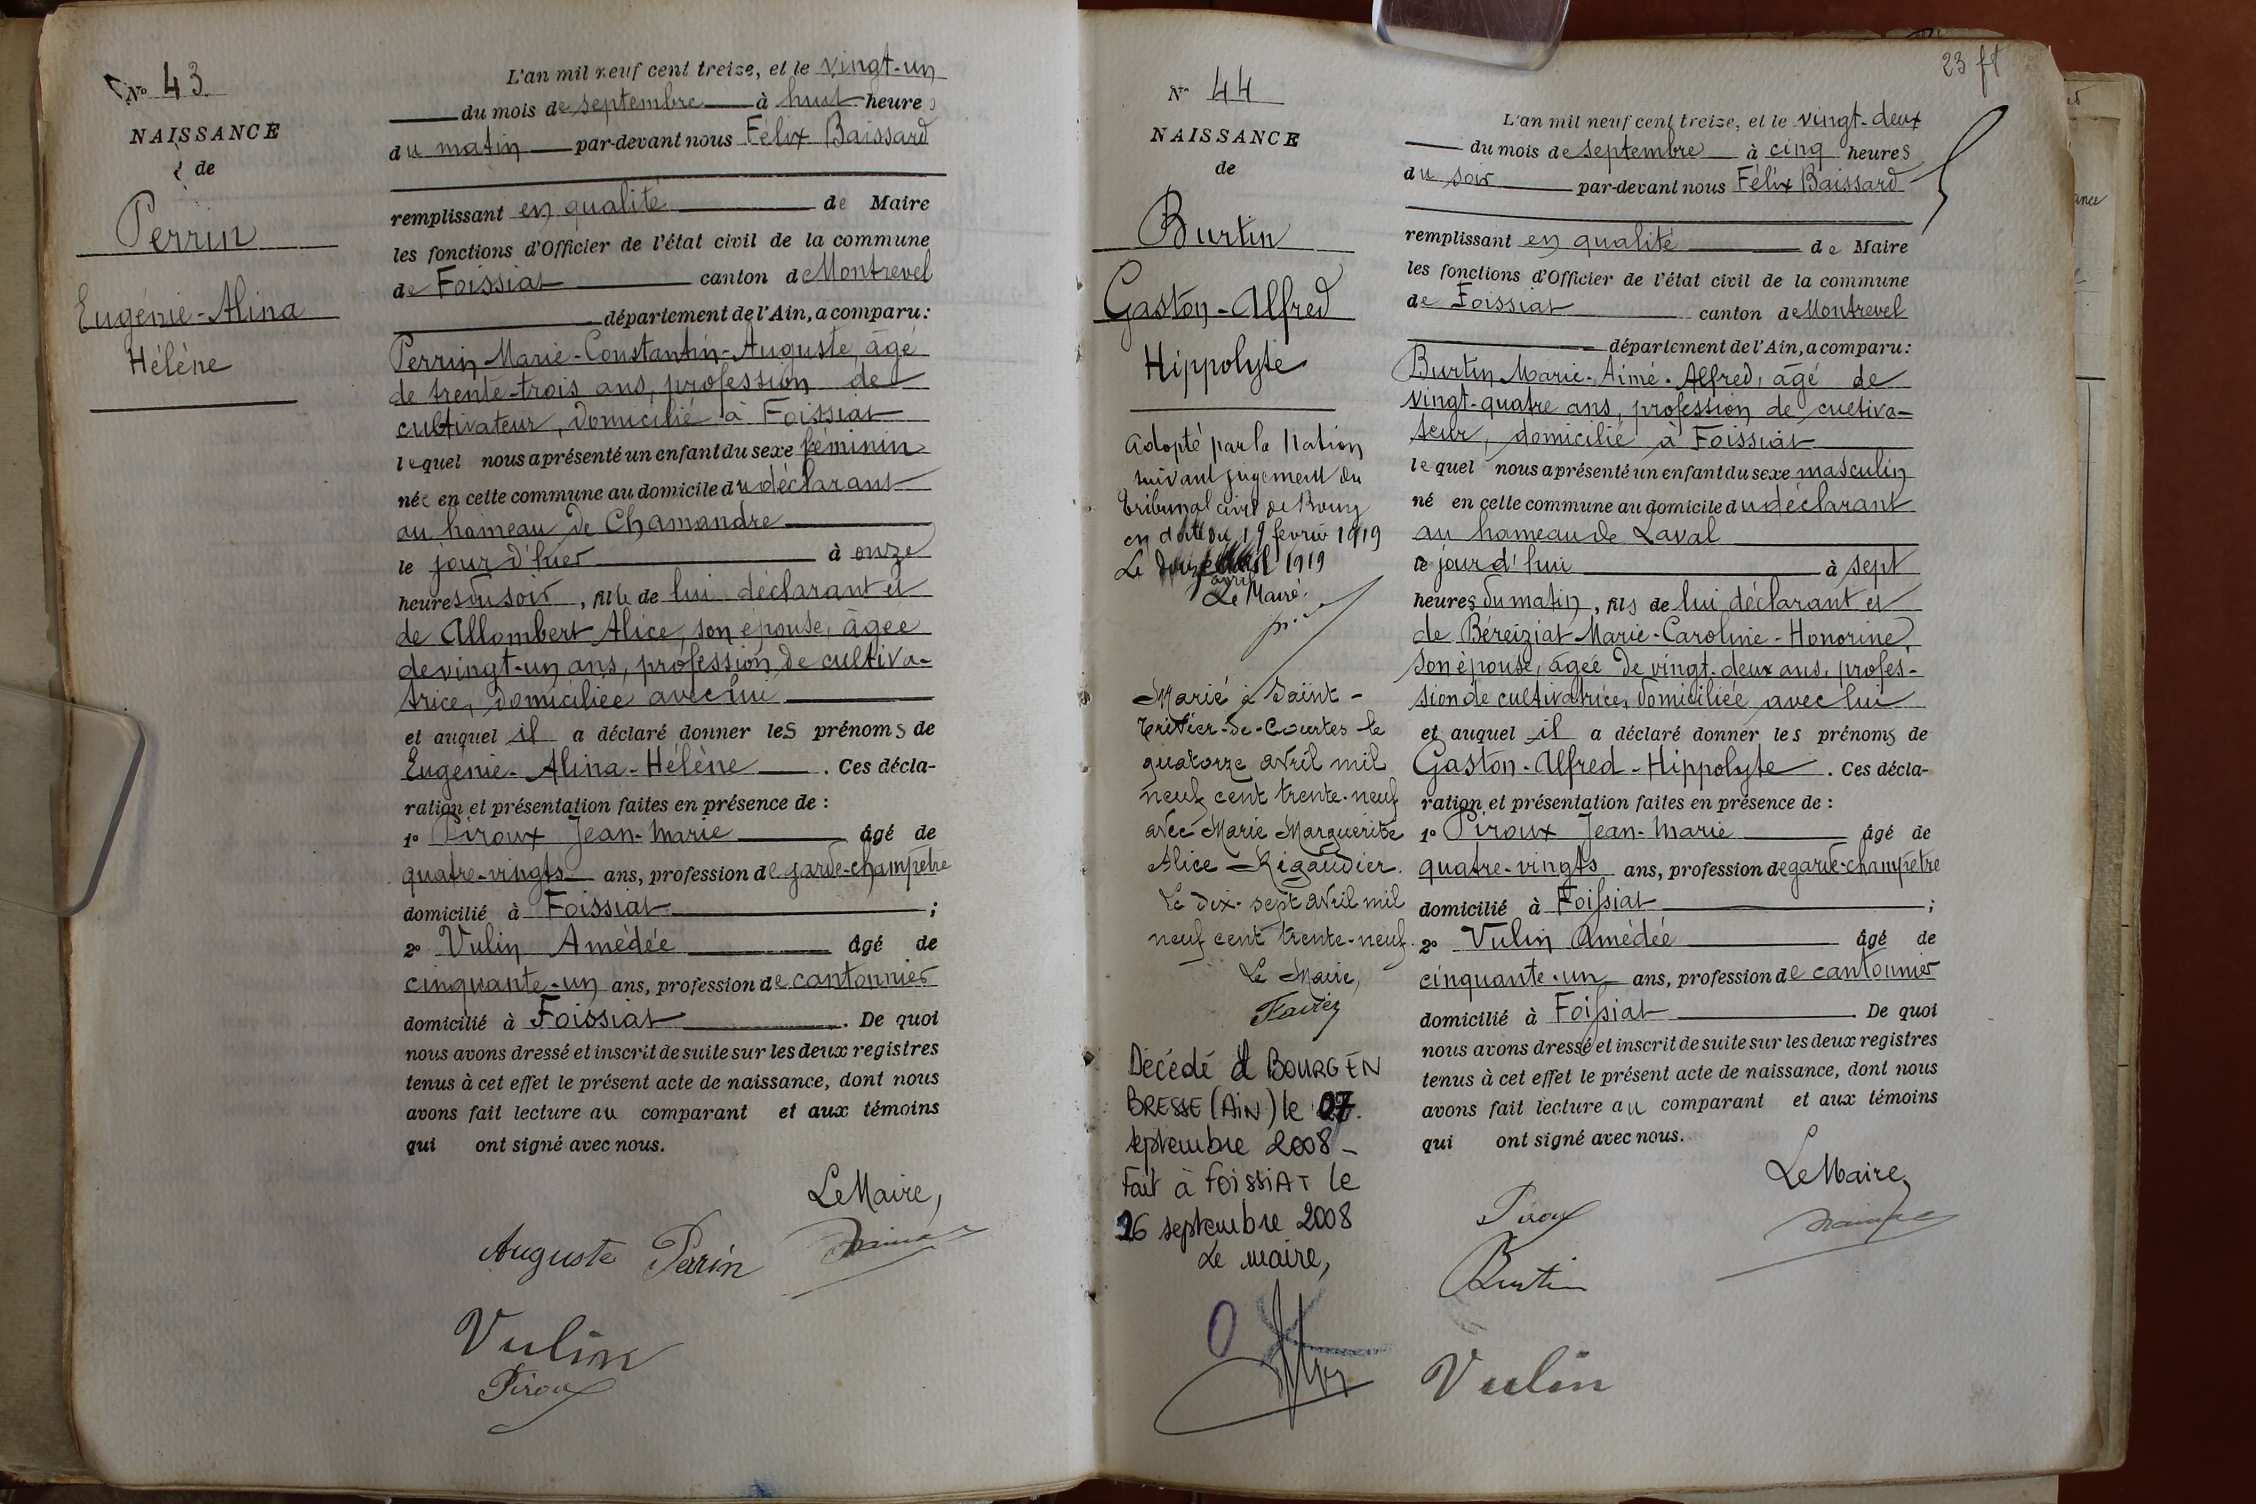 No 43
NAISSANCE
de
Perrin
Eugénie-Alina
Hélène
L'an mil neuf cent treize, et le vingt-un
du mois de septembre à huit heures
du matin par-devant nous Félix Baissard
remplissant en qualité de Maire
les fonctions d'Officier de l'état civil de la commune
de Foissiat canton de Montrevel
département de l'Ain, a comparu:
Perrin Marie-Constantin-Auguste, âgé
de trente-trois ans, profession de
cultivateur, domicilié à Foissiat
lequel nous a présenté un enfant du sexe féminin
née en cette commune au domicile du déclarant
au hameau de Chamandre
le jour d'hier à onze
heures du soir, fille de lui déclarant et
de Allombert Alice, son épouse, âgée
de vingt-un ans, profession de cultiva-
trice, domiciliée avec lui
et auquel il a déclaré donner les prénoms de
Eugénie-Alina-Hélène. Ces décla-
ration et présentation faites en présence de :
1o Piroux Jean-Marie âgé de
quatre-vingts ans, profession de garde-champêtre
domicilié à Foissiat ;
2o Vulin Amédée âgé de
cinquante-un ans, profession de cantonnier
domicilié à Foissiat. De quoi
nous avons dressé et inscrit de suite sur les deux registres
tenus à cet effet le présent acte de naissance, dont nous
avons fait lecture au comparant et aux témoins
qui ont signé avec nous.
Le Maire,
Auguste Perin
Vulin
Piroux
23 ft
No 44
NAISSANCE
de
Burtin
Gaston-Alfred
Hippolyte
Adopté par la Nation
suivant jugement du
Tribunal civil de Bourg
en date du 19 février 1919
Le douze avril 1919
Le Maire:
Marié à Saint-
Trivier-de-Courtes le
quatorze avril mil
neuf cent trente-neuf
avec Marie Marguerite
Alice Rigaudier.
Le dix-sept avril mil
neuf cent trente-neuf.
Le Maire,
Décédé à BOURG EN
BRESSE (AIN) le 07.
septembre 2008 -
Fait à FOISSIAT le
26 septembre 2008
Le maire,
L'an mil neuf cent treize, et le vingt-deux
du mois de septembre à cinq heures
du soir par-devant nous Félix Baissard
remplissant en qualité de Maire
les fonctions d'Officier de l'état civil de la commune
de Foissiat canton de Montrevel
département de l'Ain, a comparu:
Burtin Marie-Aimé-Alfred, âgé de
vingt-quatre ans, profession de cultiva-
teur, domicilié à Foissiat
lequel nous a présenté un enfant du sexe masculin
né en cette commune au domicile du déclarant
au hameau de Laval
ce jour d'hui à sept
heures du matin, fils de lui déclarant et
de Béreiziat Marie-Caroline-Honorine
son épouse, âgée de vingt-deux ans, profes-
sion de cultivatrice, domiciliée avec lui
et auquel il a déclaré donner les prénoms de
Gaston-Alfred-Hippolyte. Ces décla-
ration et présentation faites en présence de :
1o Piroux Jean-Marie âgé de
quatre-vingts ans, profession de garde-champêtre
domicilié à Foissiat ;
2o Vulin Amédée âgé de
cinquante-un ans, profession de cantonnier
domicilié à Foissiat. De quoi
nous avons dressé et inscrit de suite sur les deux registres
tenus à cet effet le présent acte de naissance, dont nous
avons fait lecture au comparant et aux témoins
qui ont signé avec nous.
Le Maire,
Piroux
Burtin
Vulin